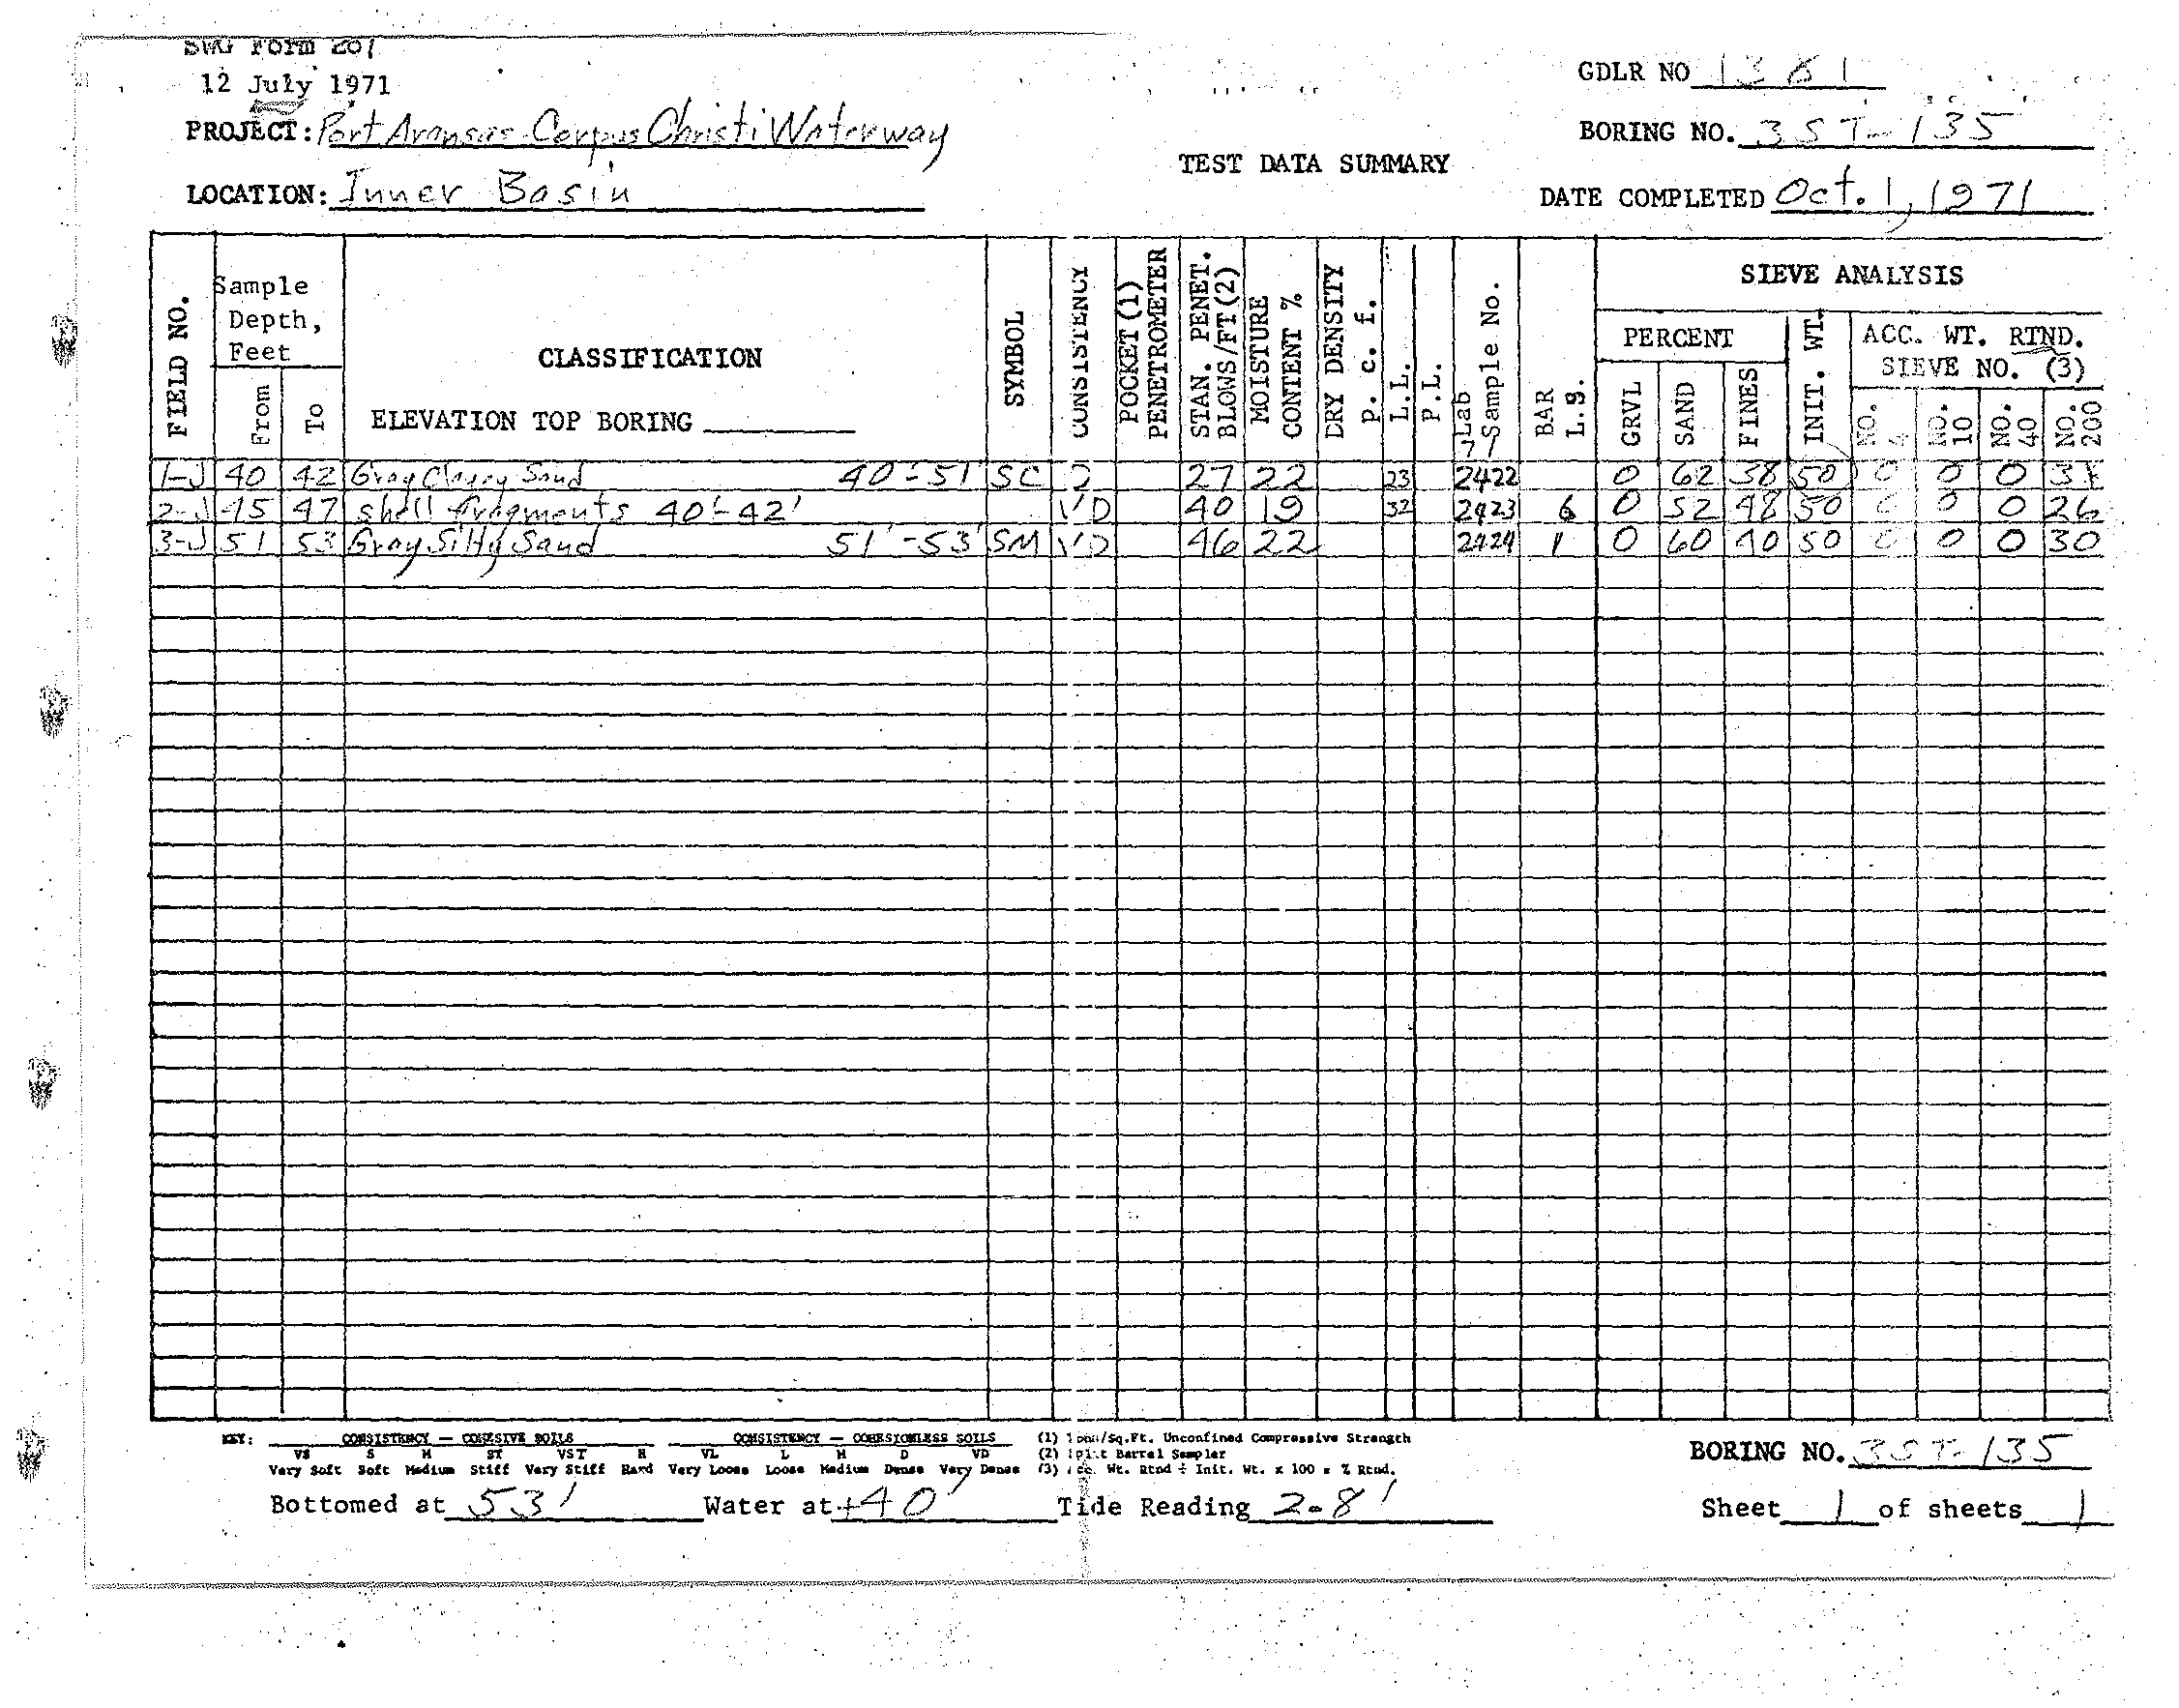 SWG Form 207
12 July 1971
GDLR NO 1361
PROJECT: Port Aransas-Corpus Christi Waterway
BORING NO. 3ST-135
TEST DATA SUMMARY
LOCATION: Inner Basin
DATE COMPLETED Oct. 1, 1971
FIELD NO.
Sample Depth, Feet
From
To
CLASSIFICATION
ELEVATION TOP BORING
SYMBOL
CONSISTENCY
POCKET (1) PENETROMETER
STAN. PENET. BLOWS/FT(2)
MOISTURE CONTENT %
DRY DENSITY p. c. f.
L.L.
P.L.
Lab Sample No.
71-
BAR L.S.
SIEVE ANALYSIS
PERCENT
GRVL
SAND
FINES
INIT. WT.
ACC. WT. RTND.
SIEVE NO. (3)
NO. 4
NO. 10
NO. 40
NO. 200
1-J 40 42 Gray Clayey Sand 40-51' SC D 27 22 23 2422 0 62 38 50 0 0 0
2-J 45 47 shell fragments 40'-42' VD 40 19 32 2423 6 0 52 48 50 0 0 0 26
3-J 51 53 Gray Silty Sand 51'-53' SM VD 46 22 2424 1 0 60 40 50 0 0 0 30
KEY: CONSISTENCY — COHESIVE SOILS CONSISTENCY — COHESIONLESS SOILS (1) Tons/Sq.Ft. Unconfined Compressive Strength
VS S M ST VST H VL L M D VD (2) Split Barrel Sampler
Very Soft Soft Medium Stiff Very Stiff Hard Very Loose Loose Medium Dense Very Dense (3) Acc. Wt. Rtnd ÷ Init. Wt. x 100 = % Rtnd.
BORING NO. 3ST-135
Bottomed at 53' Water at +40' Tide Reading 2.8'
Sheet 1 of sheets 1